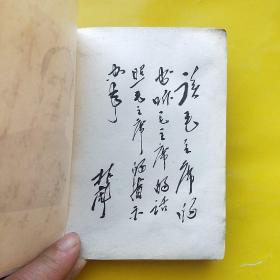 读毛主席的
书 听毛主席的话
照毛主席的指示
办事
林彪